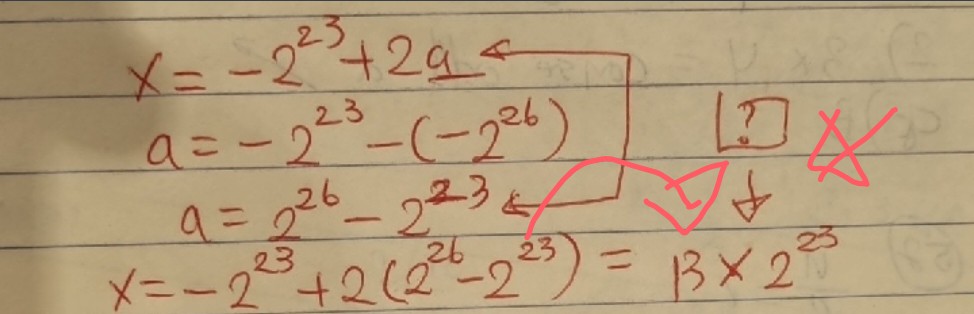 x = -2^23 + 2a
a = -2^23 - (-2^26)
?
a = 2^26 - 2^23
x = -2^23 + 2(2^26 - 2^23) = 13 × 2^23